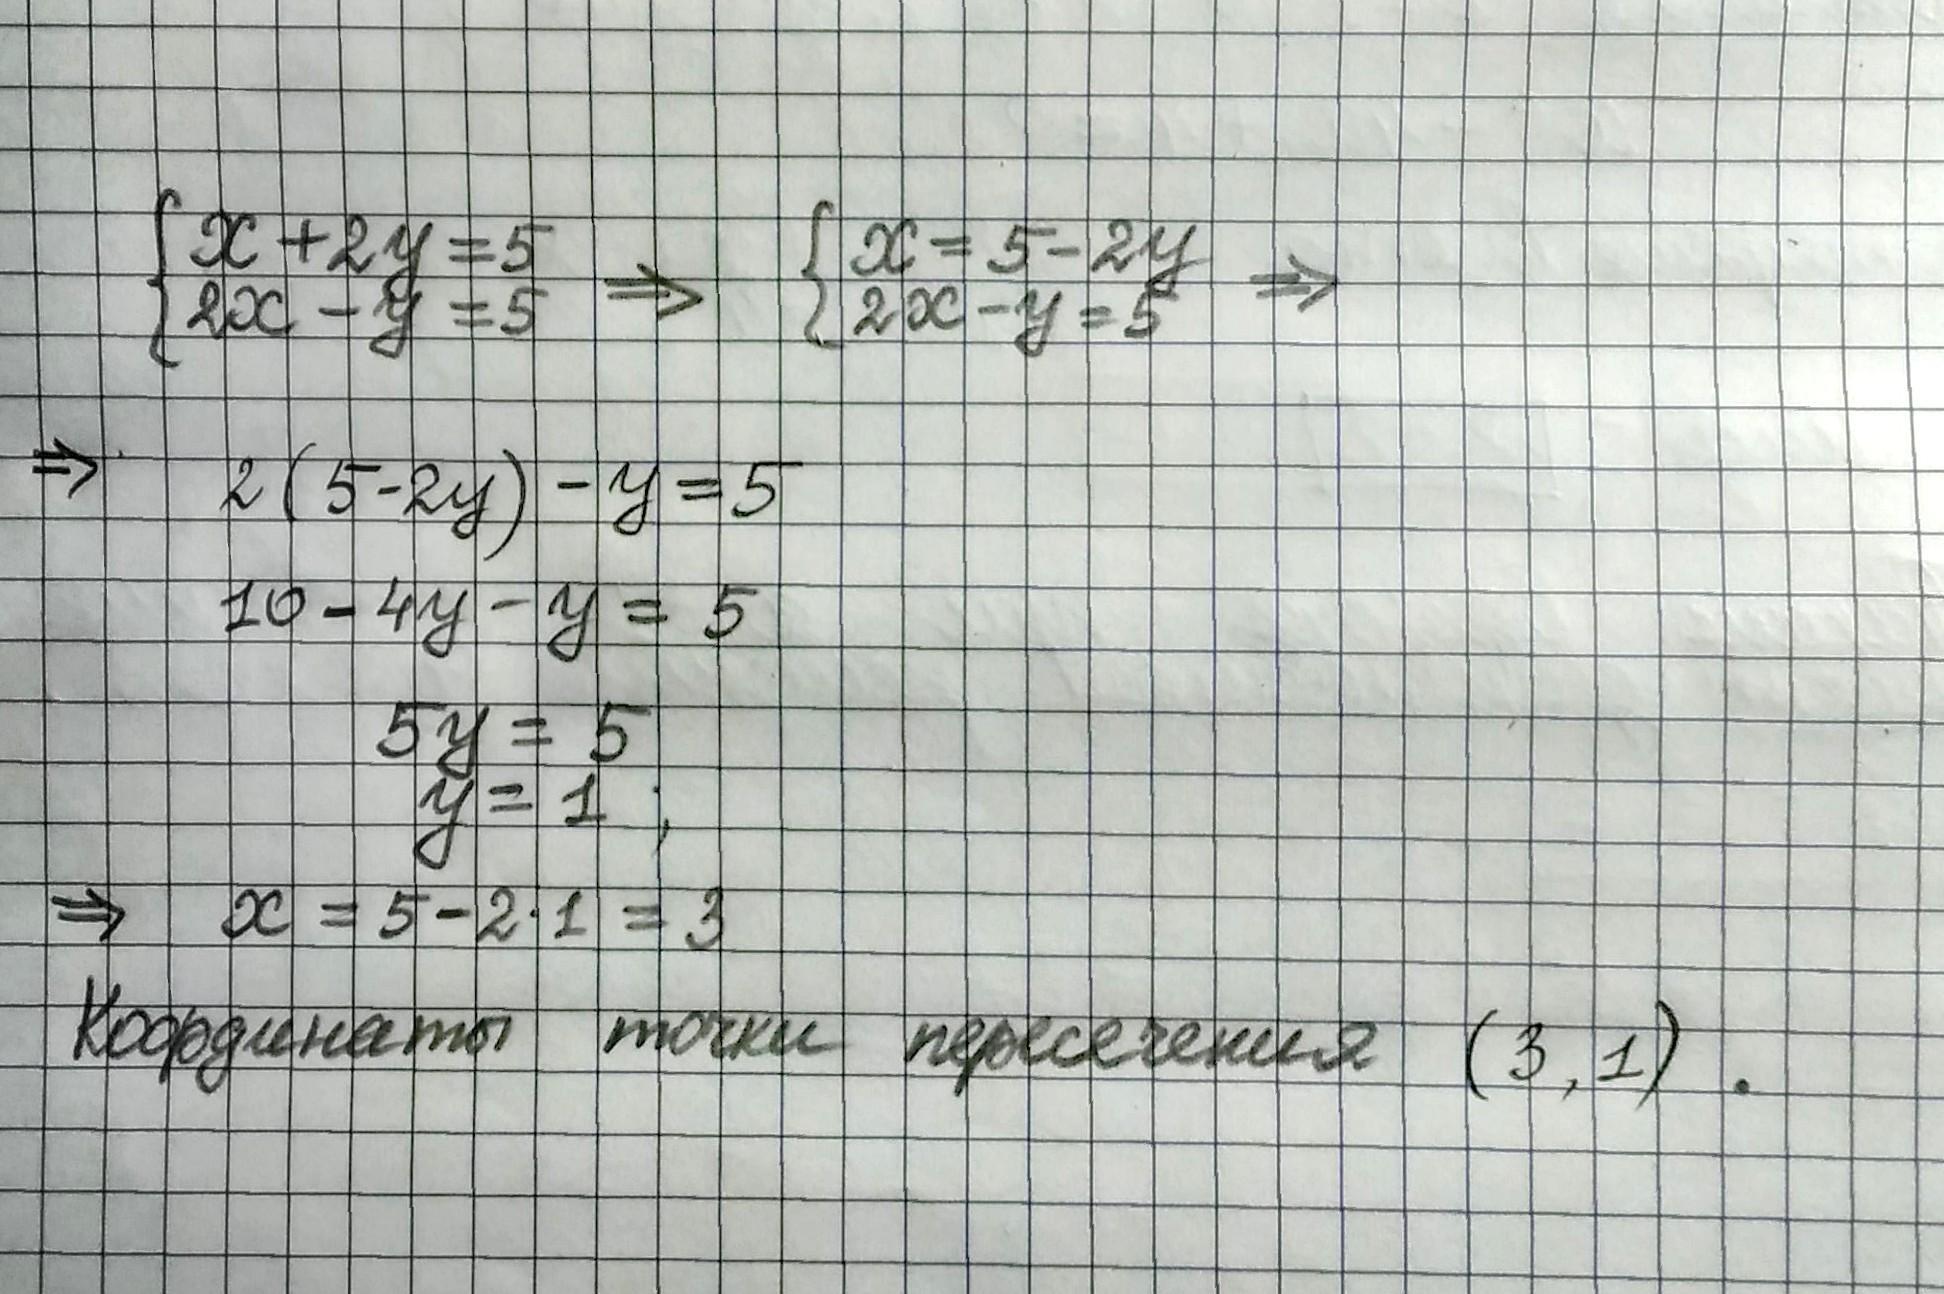 { x + 2y = 5 ⇒ { x = 5 - 2y ⇒
2x - y = 5 2x - y = 5
⇒ 2(5-2y) - y = 5
10 - 4y - y = 5
5y = 5
y = 1 ;
⇒ x = 5 - 2·1 = 3
Координаты точки пересечения (3,1).